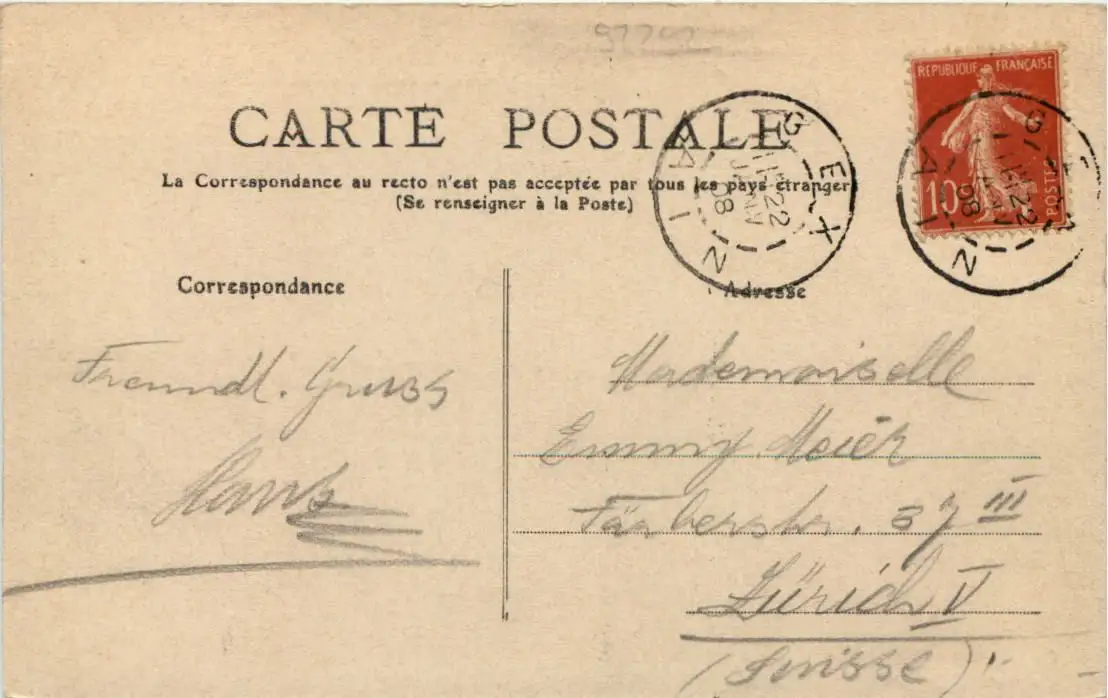 97702
REPUBLIQUE FRANÇAISE
10c
POSTES
CARTE POSTALE
La Correspondance au recto n'est pas acceptée par tous les pays étranger
(Se renseigner à la Poste)
GEX
22
08
AIN
GEX
22
08
AIN
Correspondance
Adresse
Freundl. Gruss
Hans
Mademoiselle
Emmy Meier
Färberstr. 37 III
Zürich V
(Suisse)